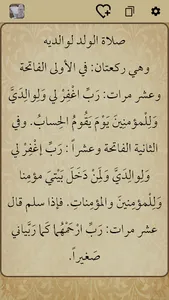 صلاة الولد لوالديه
وهي ركعتان: في الأولى الفاتحة
وعشر مرات: رَبِّ اغْفِرْ لِي وَلِوالِدَيَّ
وَلِلْمُؤمِنِينَ يَوْمَ يَقُومُ الْحِسابُ. وفي
الثانية الفاتحة وعشراً : رَبِّ إغْفِرْ لِي
وَلِوالِدَيَّ وَلِمَنْ دَخَلَ بَيْتِيَ مؤمِنا
وَلِلْمُؤمنين والمؤمِناتِ. فإذا سلم قال
عشر مرات: رَبِّ ارْحَمْهُما كَما رَبَّياني
صَغيراً.